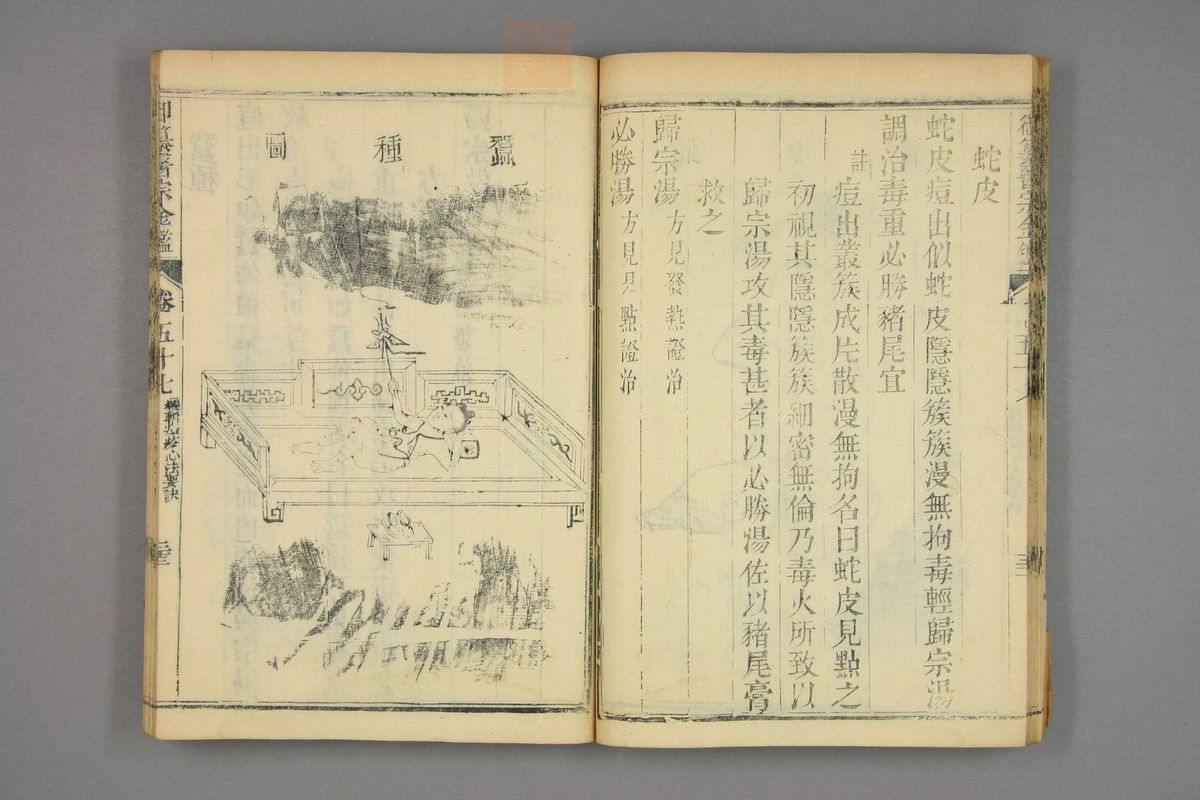 蛇皮
蛇皮痘出似蛇皮隱隱簇簇漫無拘毒輕歸宗湯
調治毒重必勝豬尾宜
註 痘出叢簇成片散漫無拘名曰蛇皮見點之
初視其隱隱簇簇細密無倫乃毒火所致以
歸宗湯攻其毒甚者以必勝湯佐以豬尾膏
救之
歸宗湯 方見發熱證治
必勝湯 方見見點證治
蠶種圖
御纂醫宗金鑑 卷五十七 編輯痘疹心法要訣